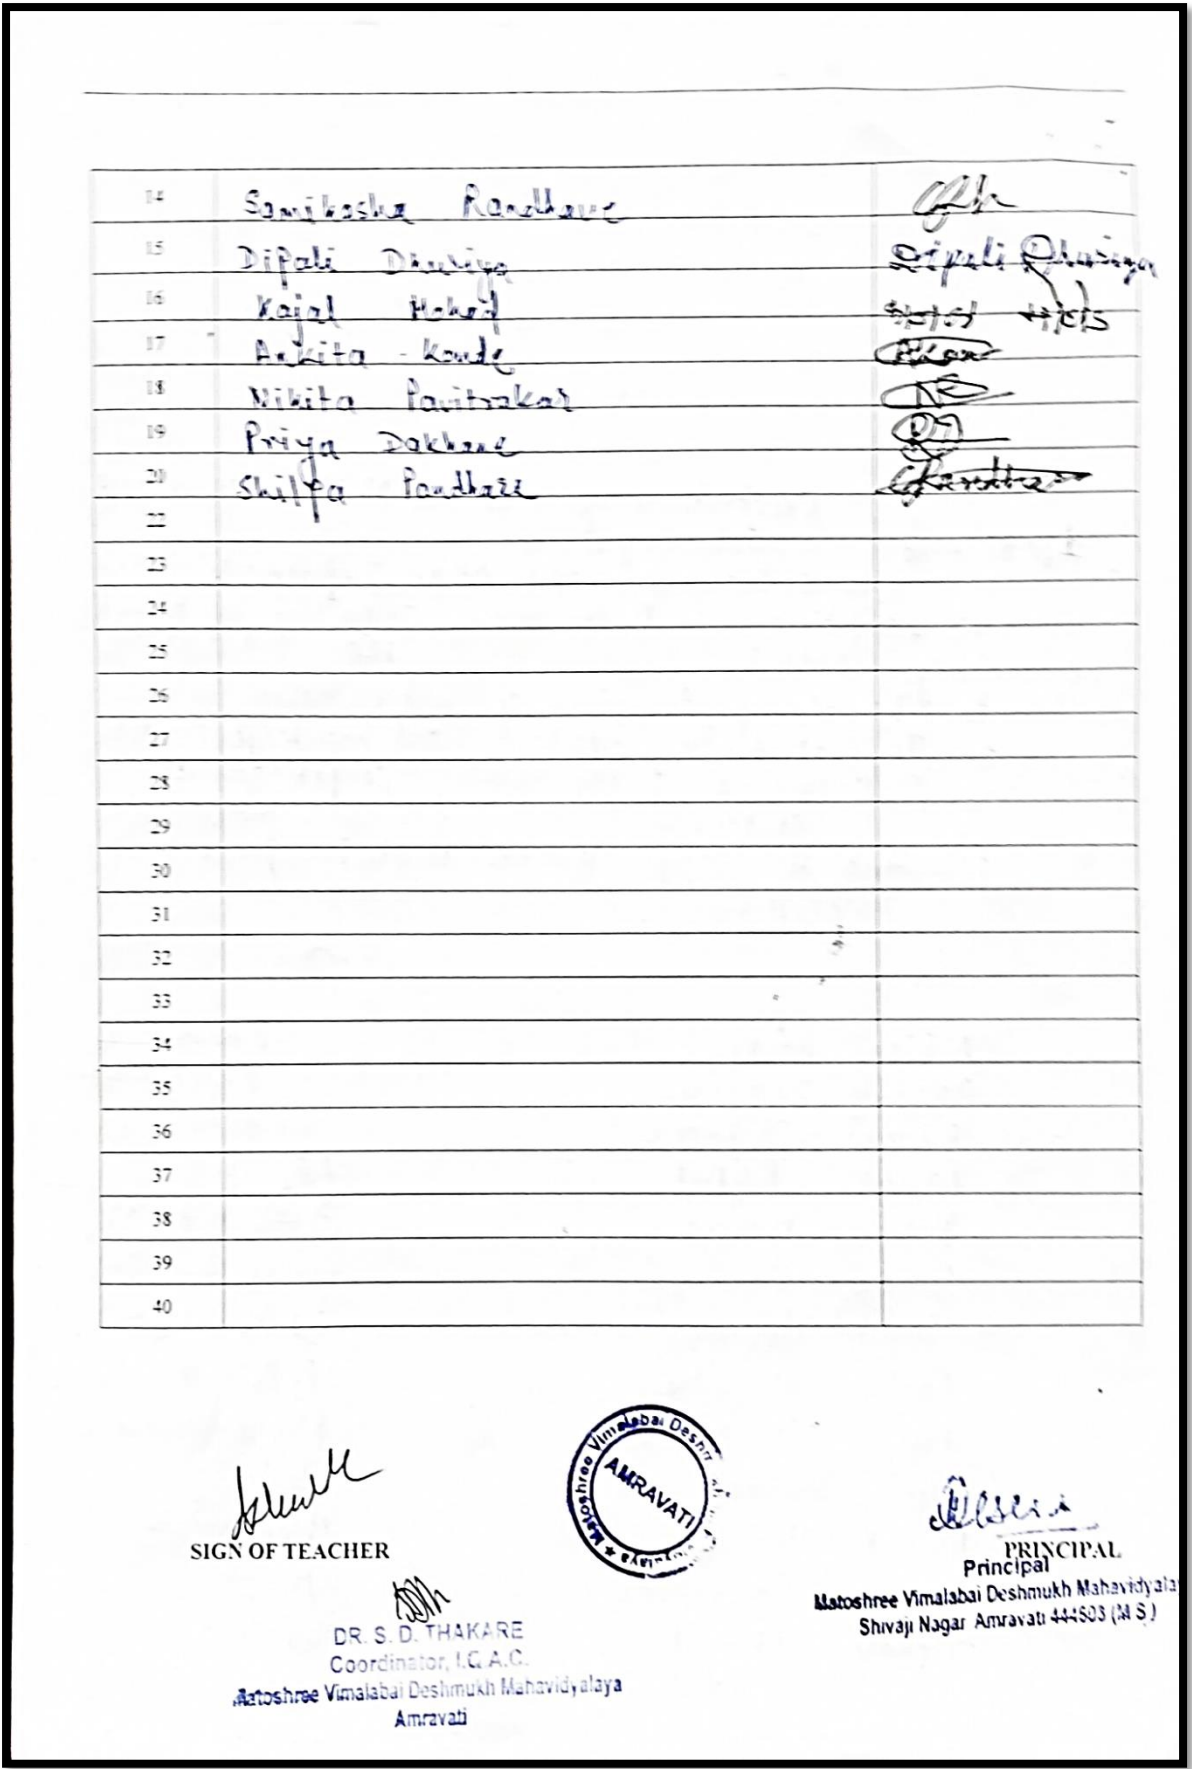 14 Samiksha Randhave
15 Dipali Dhuriya Dipali Dhuriya
16 Kajal Mohod
17 Ankita Konde AKon
18 Nikita Pavitrakar
19 Priya Dakhane
20 Shilpa Pandhare
22
23
24
25
26
27
28
29
30
31
32
33
34
35
36
37
38
39
40
Matoshree Vimalabai Deshm
AMRAVATI
SIGN OF TEACHER
PRINCIPAL
Principal
Matoshree Vimalabai Deshmukh Mahavidyala
Shivaji Nagar Amravati 444603 (M S)
DR. S. D. THAKARE
Coordinator, I.Q.A.C.
Matoshree Vimalabai Deshmukh Mahavidyalaya
Amravati